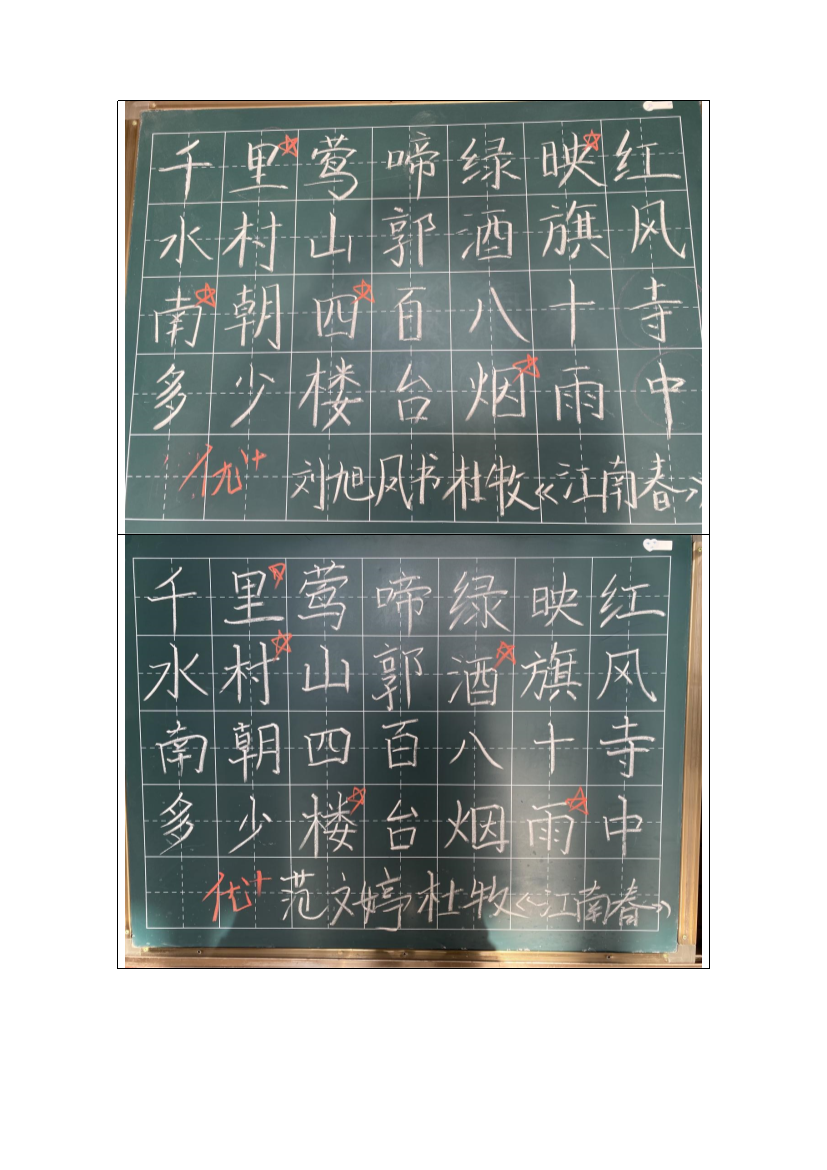 千里莺啼绿映红
水村山郭酒旗风
南朝四百八十寺
多少楼台烟雨中
优+ 刘旭凤书杜牧《江南春》
千里莺啼绿映红
水村山郭酒旗风
南朝四百八十寺
多少楼台烟雨中
优+ 范文婷杜牧《江南春》